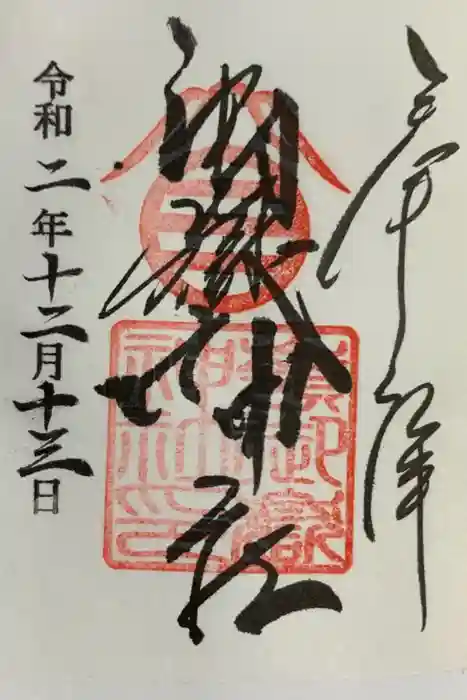 奉拝
御嶽神社
令和二年十二月十三日